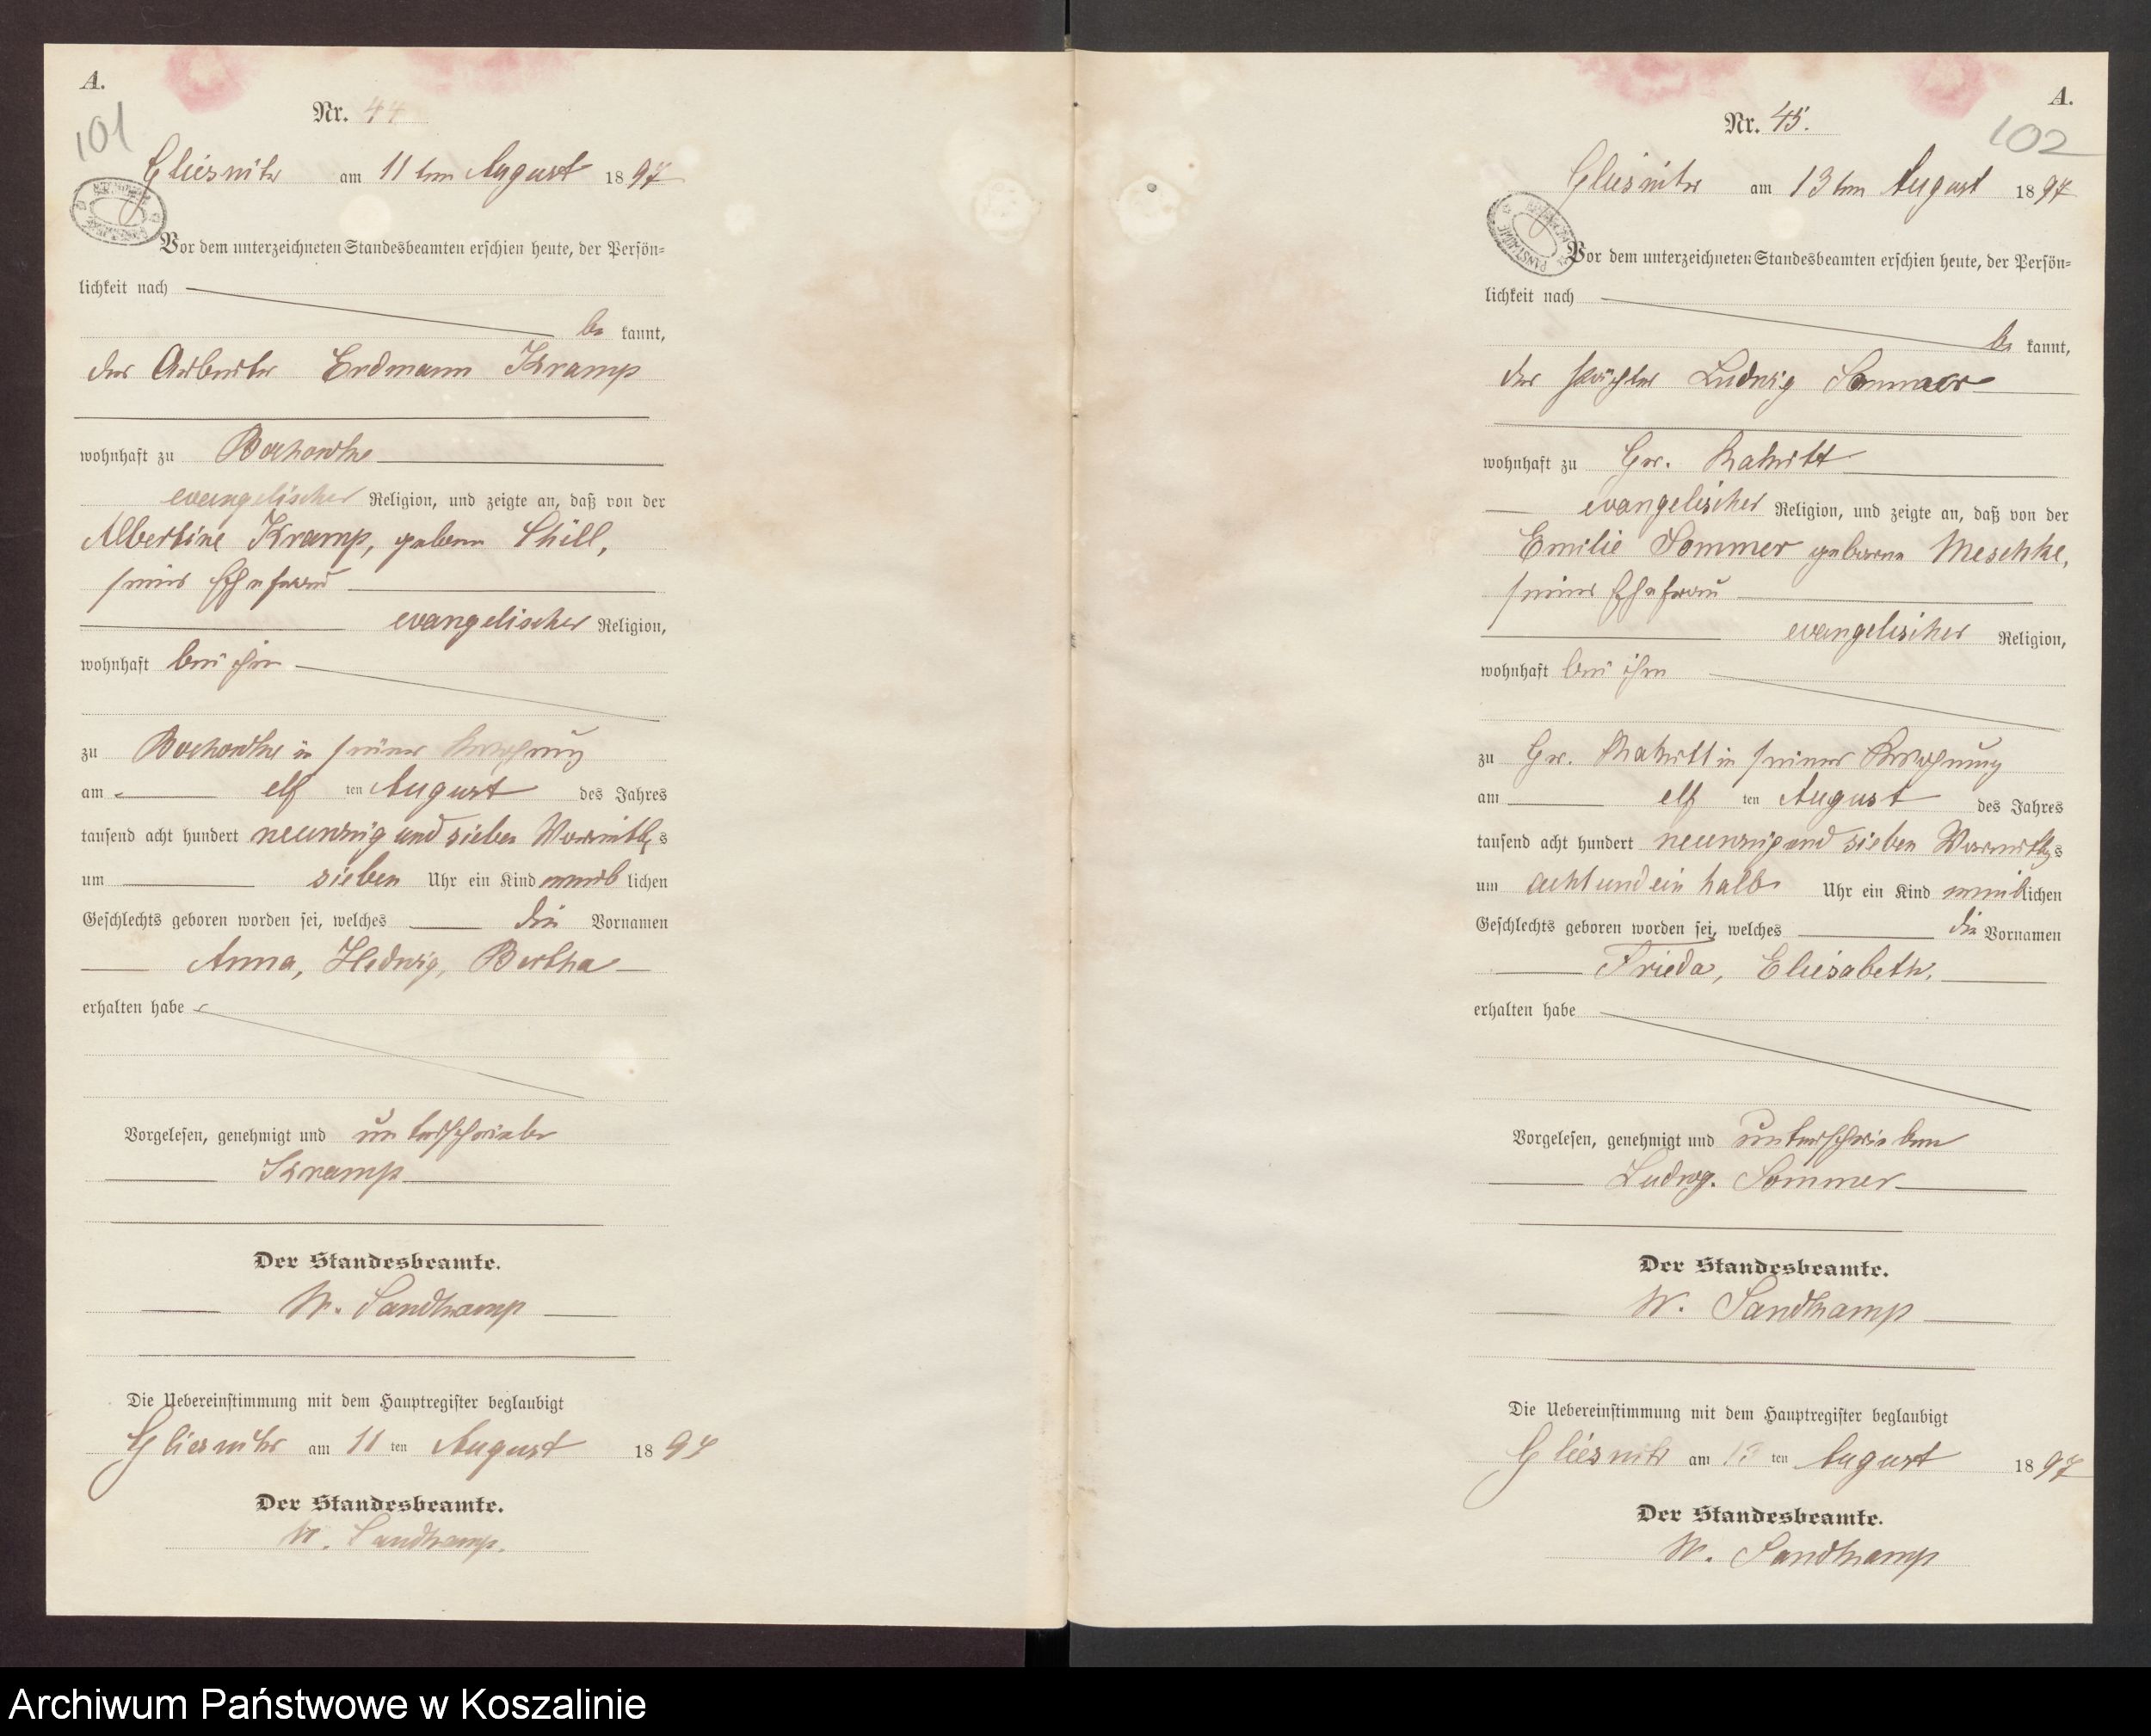 A.
101
Nr. 44
Gliesnitz am 11 ten August 1897
Vor dem unterzeichneten Standesbeamten erschien heute, der Persön-
lichkeit nach
be kannt,
der Arbeiter Erdmann Kramp
wohnhaft zu Bochowke
evangelischer Religion, und zeigte an, daß von der
Albertine Kramp, geboren
seiner Ehefrau
evangelischer Religion,
wohnhaft bei ihm
zu Bochowke in seiner Wohnung
am elf ten August des Jahres
tausend acht hundert neunzig und sieben Vormittags
um sieben Uhr ein Kind weiblichen
Geschlechts geboren worden sei, welches die Vornamen
Anna, Hedwig, Bertha
erhalten habe
Vorgelesen, genehmigt und unterschrieben
Kramp
Der Standesbeamte.
W. Sandkamp
Die Uebereinstimmung mit dem Hauptregister beglaubigt
Gliesnitz am 11 ten August 1897
Der Standesbeamte.
W. Sandkamp.
A.
102
Nr. 45.
Gliesnitz am 13 ten August 1897
Vor dem unterzeichneten Standesbeamten erschien heute, der Persön-
lichkeit nach
be kannt,
der Pächter Ludwig Sommer
wohnhaft zu Gr. Rakitt
evangelischer Religion, und zeigte an, daß von der
Emilie Sommer geborene Meschke,
seiner Ehefrau
evangelischer Religion,
wohnhaft bei ihm
zu Gr. Rakitt in seiner Wohnung
am elf ten August des Jahres
tausend acht hundert neunzig und sieben Vormittags
um acht und ein halb Uhr ein Kind weiblichen
Geschlechts geboren worden sei, welches die Vornamen
Frieda, Eliesabeth,
erhalten habe
Vorgelesen, genehmigt und unterschrieben
Ludwg. Sommer
Der Standesbeamte.
W. Sandkamp
Die Uebereinstimmung mit dem Hauptregister beglaubigt
Gliesnitz am 13 ten August 1897
Der Standesbeamte.
W. Sandkamp
Archiwum Państwowe w Koszalinie